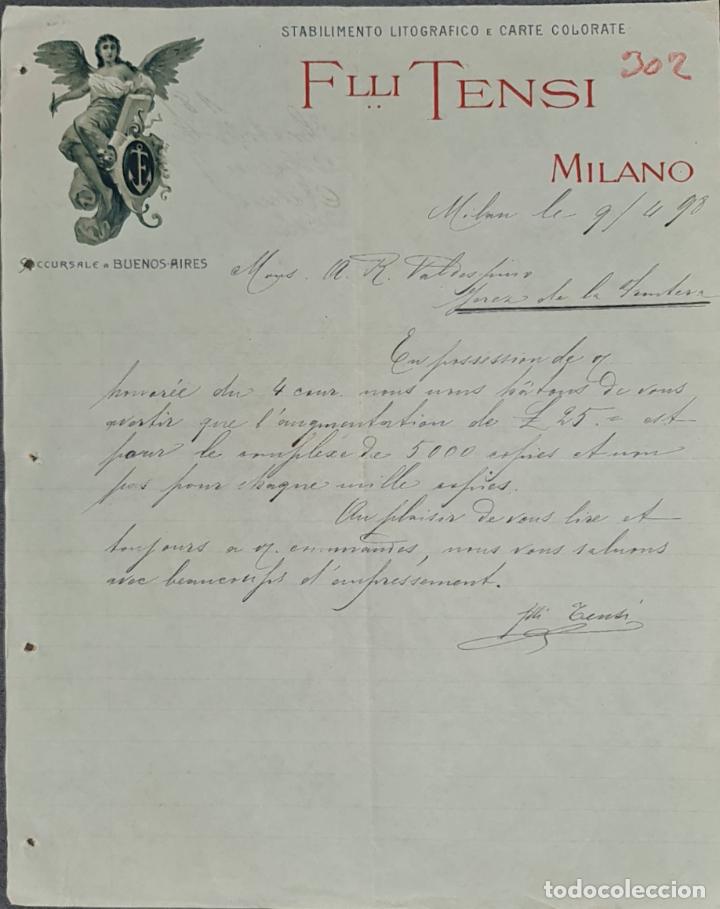 STABILIMENTO LITOGRAFICO E CARTE COLORATE
302
FLLI TENSI
MILANO
Milan le 9/4 98
SUCCURSALE A BUENOS-AIRES
Mons. A. R. Valdespino
Jerez de la Frontera
En possession de v/
honorée du 4 cour. nous nous hâtons de vous
avertir que l'augmentation de £ 25.= est
pour le complexe de 5000 copies et non
pas pour chaque mille copies.
Au plaisir de vous lire et
toujours a v/ commandes, nous vous saluons
avec beaucoups d'empressement.
flli Tensi
todocoleccion.net